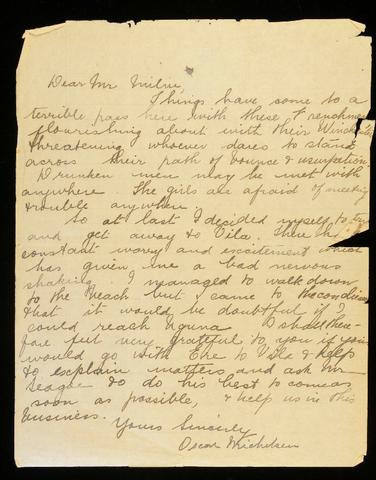 Dear Mr Milne,
Things have come to a
terrible pass here with these Frenchmen
flourishing about with their Winch
threatening whoever dares to stand
across their path of bounce & usurpation.
Drunken men may be met with
anywhere. The girls are afraid of meeting
trouble anywhere.
So at last I decided myself to try
and get away to Vila. This
constant worry and excitement which
has given me a bad nervous
shaking. I managed to walk down
to the beach but came to the conclusion
that it would be doubtful if I
could reach Nguna. I shall there-
fore feel very grateful to you if you
would go with to Vila & help
to explain matters and ask Mr
Seagoe to do his best to come as
soon as possible, & help us in this
business.
Yours Sincerely
Oscar Michelsen